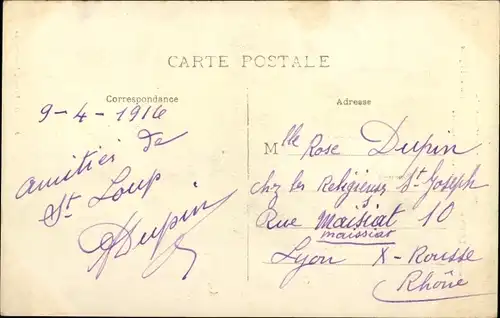 CARTE POSTALE
Correspondance
Adresse
9-4-1916
amitiés de
St Loup
ADupin
Mlle Rose Dupin
chez les Religieuses St Joseph
Rue Maisiat 10
maissiat
Lyon X-Rousse
Rhône